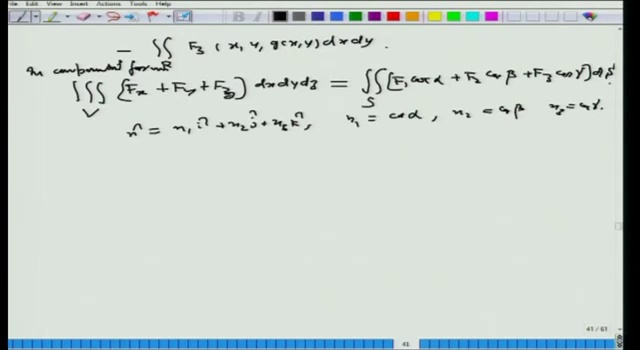 File Edit View Insert Actions Tools Help
− ∬_R F₃ (x, y, g(x, y) dx dy .
In component form
∭_V [F_x + F_y + F_z] dx dy dz = ∬_S [F₁ cos α + F₂ cos β + F₃ cos γ] ds
n̂ = n₁ î + n₂ ĵ + n₃ k̂, n₁ = cos α, n₂ = cos β n₃ = cos γ.
41 / 61
41